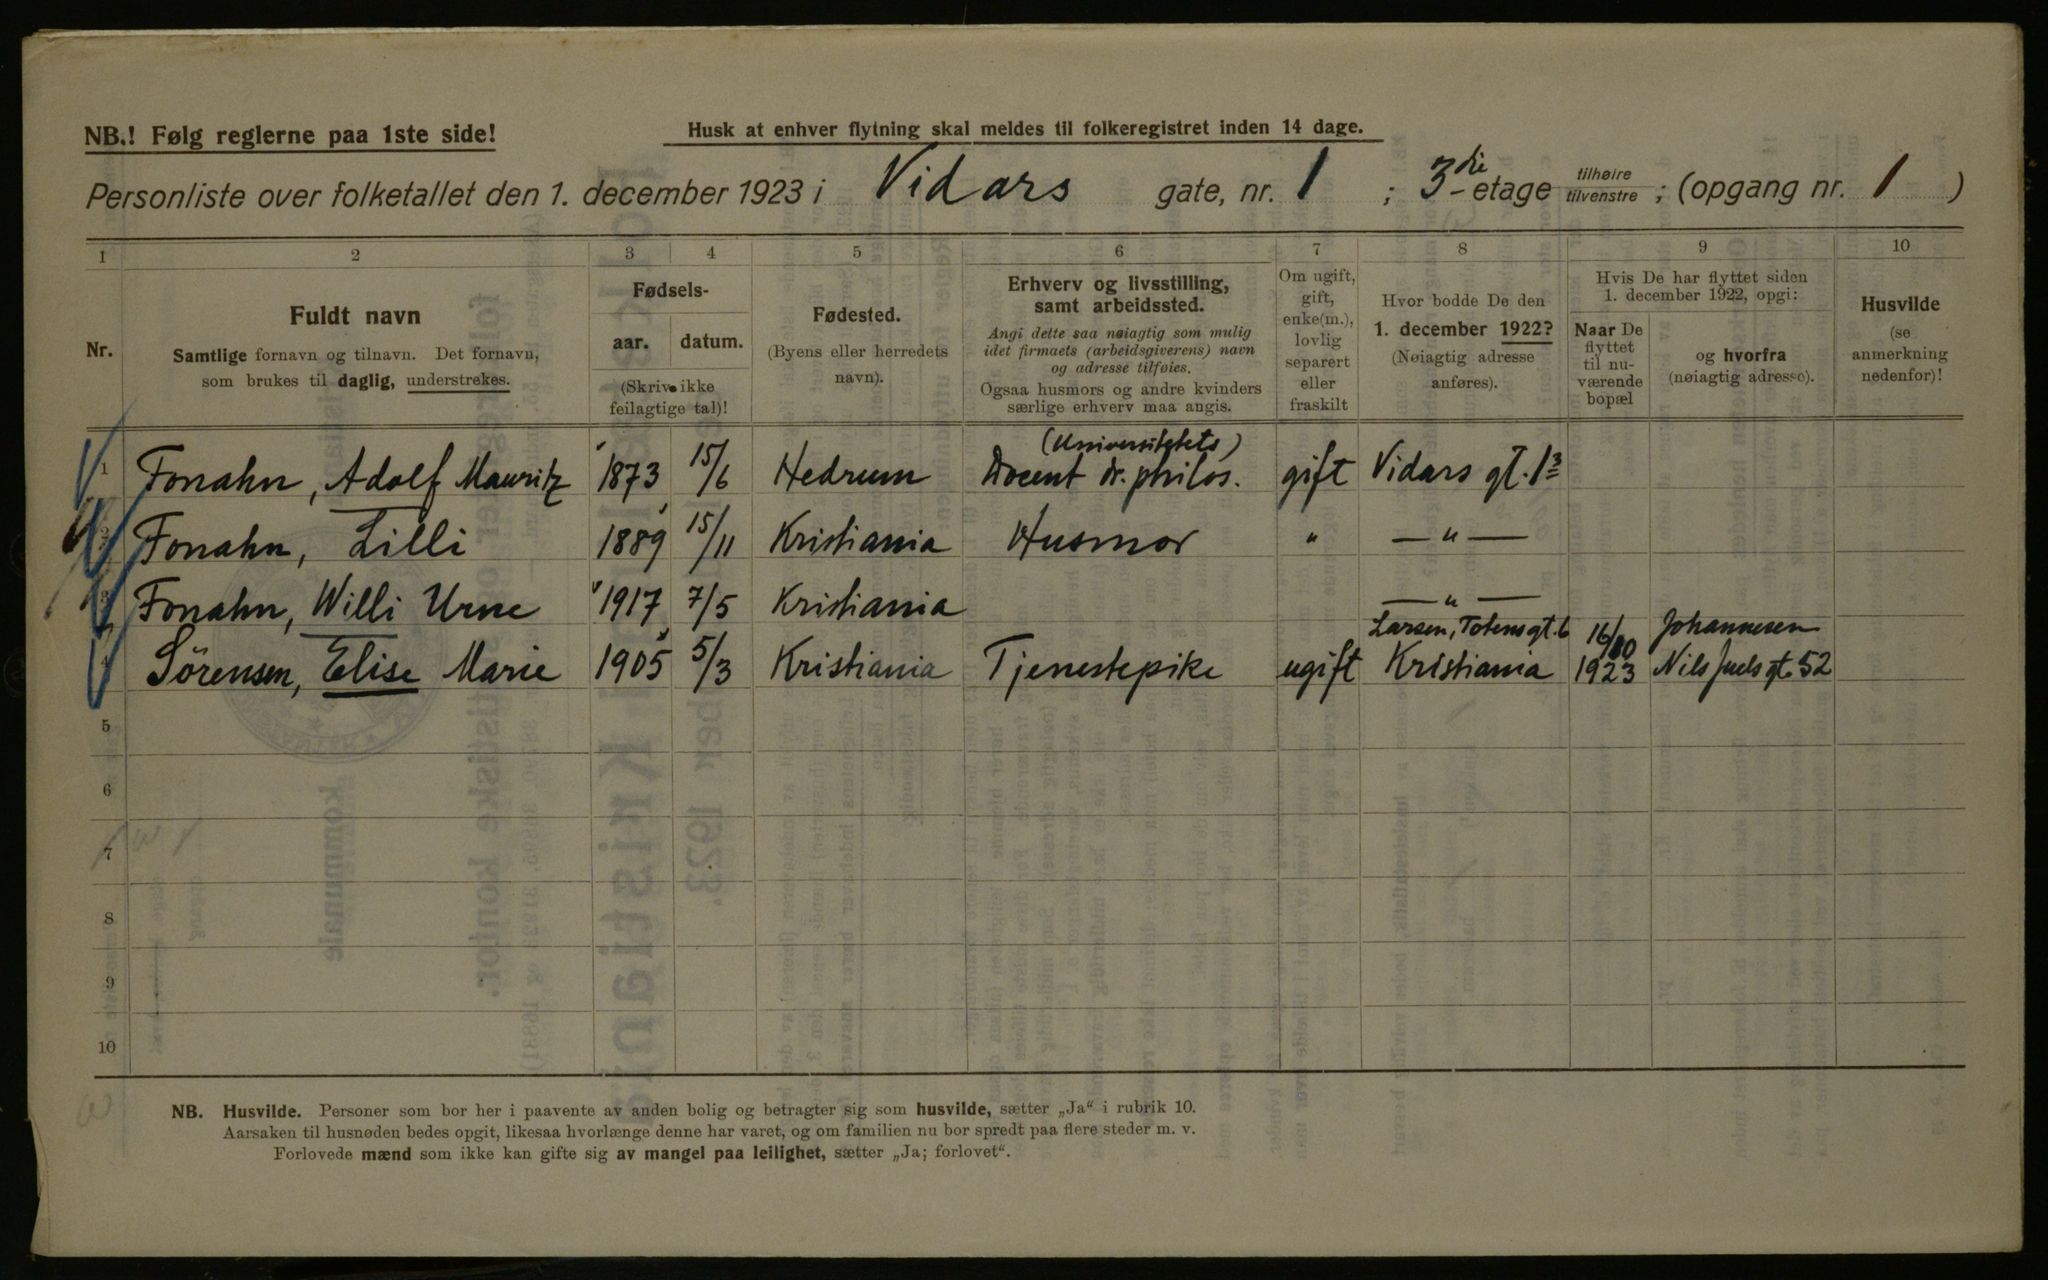 NB.! Følg reglerne paa 1ste side!
Husk at enhver flytning skal meldes til folkeregistret inden 14 dage.
Personliste over folketallet den 1. december 1923 i Vidars gate, nr. 1 ; 3die etage tilhøire tilvenstre ; (opgang nr. 1 )
1 2 3 4 5 6 7 8 9 10
Nr.
Fuldt navn
Samtlige fornavn og tilnavn. Det fornavn,
som brukes til daglig, understrekes.
Fødsels-
aar. datum.
(Skriv ikke
feilagtige tal)!
Fødested.
(Byens eller herredets
navn).
Erhverv og livsstilling,
samt arbeidssted.
Angi dette saa nøiagtig som mulig
idet firmaets (arbeidsgiverens) navn
og adresse tilføies.
Ogsaa husmors og andre kvinders
særlige erhverv maa angis.
Om ugift,
gift,
enke(m.),
lovlig
separert
eller
fraskilt
Hvor bodde De den
1. december 1922?
(Nøiagtig adresse
anføres).
Hvis De har flyttet siden
1. december 1922, opgi:
Naar De
flyttet
til nu-
værende
bopæl
og hvorfra
(nøiagtig adresse).
Husvilde
(se
anmerkning
nedenfor)!
(Universitetets)
1 Fonahn, Adolf Mauritz 1873 15/6 Hedrum Docent dr. philos. gift Vidars gt. 1 3
2 Fonahn, Lilli 1889 15/11 Kristiania Husmor " — " —
3 Fonahn, Willi Urne 1917 7/5 Kristiania — " —
Larsen, Totensgt. 6 16/10 Johannesen
4 Sörensen, Elise Marie 1905 5/3 Kristiania Tjenestepike ugift Kristiania 1923 Nils Juels gt. 52
5
6
7
8
9
10
NB. Husvilde. Personer som bor her i paavente av anden bolig og betragter sig som husvilde, sætter „Ja“ i rubrik 10.
Aarsaken til husnøden bedes opgit, likesaa hvorlænge denne har varet, og om familien nu bor spredt paa flere steder m. v.
Forlovede mænd som ikke kan gifte sig av mangel paa leilighet, sætter „Ja; forlovet“.